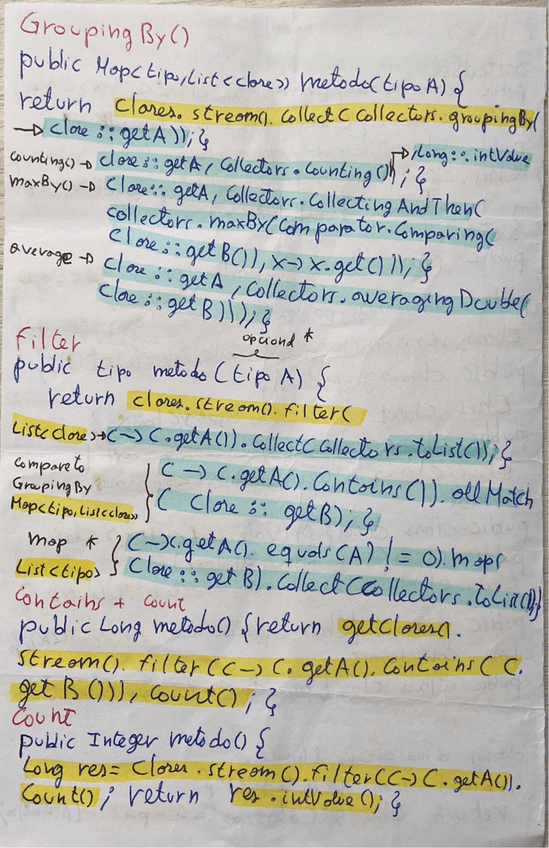 GroupingBy()
public Map<tipo,List<clase>> metodo(tipo A) {
return clases.stream().collect(Collectors.groupingBy(
→ clase::getA)); }
counting() → clase::getA, Collectors.counting() ); } → , Long::intValue
maxBy() → clase::getA, Collectors.CollectingAndThen(
collectors.maxBy(Comparator.Comparing(
clase::getB()), x→x.get())); }
average → clase::getA, Collectors.averagingDouble(
clase::getB))); }
Filter
opcional *
public tipo metodo (tipo A) {
return clases.stream().filter(
List<clase> → C→ C.getA()).Collect(Collectors.toList()); }
Compare to
GroupingBy
Map<tipo,List<clase>>
C → C.getA().Contains()).allMatch
( clase::getB); }
map *
List<tipo>
C→c.getA().equals(A) != 0).map(
Clase::getB).Collect(Collectors.toList()); }
Contains + Count
public Long metodo() {return getClases().
stream().filter(C→ C.getA().Contains(C.
getB())).Count(); }
Count
public Integer metodo() {
Long res= Clases.stream().filter(C→ C.getA()).
Count(); return res.intValue(); }